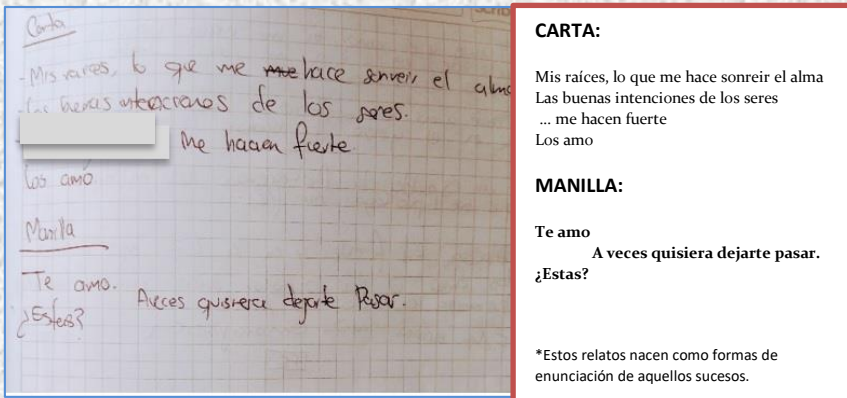 Carta
- Mis raices, lo que me me hace sonreir el alma
- Las buenas intenciones de los seres.
Me hacen fuerte.
Los amó
Manilla
Te amo.
Aveces quisiera dejarte Pasar.
¿Estas?
CARTA:
Mis raíces, lo que me hace sonreir el alma
Las buenas intenciones de los seres
... me hacen fuerte
Los amo
MANILLA:
Te amo
A veces quisiera dejarte pasar.
¿Estas?
*Estos relatos nacen como formas de
enunciación de aquellos sucesos.